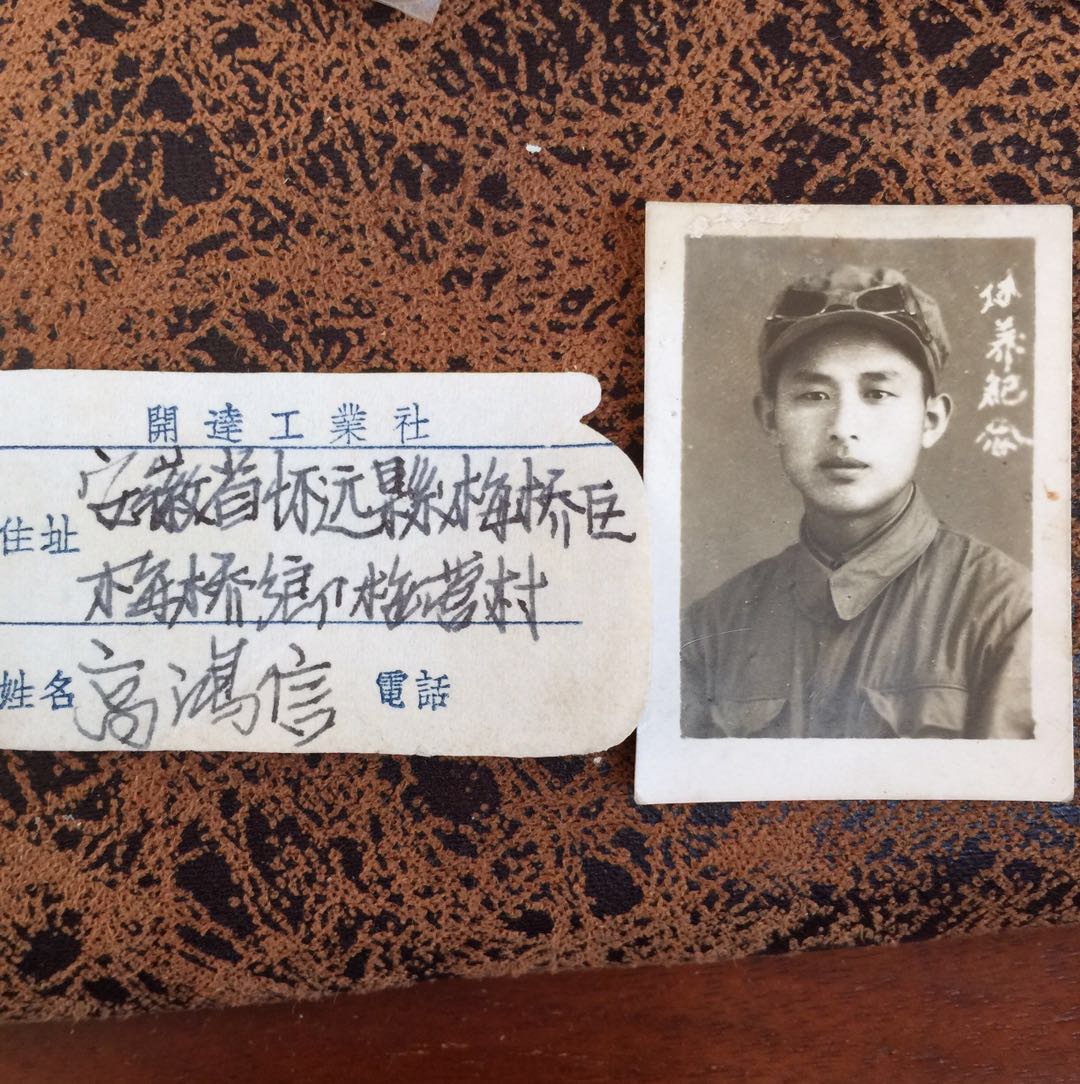 開達工業社
住址 安徽省怀远縣梅桥区
梅桥鄉梅营村
姓名 高鴻信 電話
休养紀念